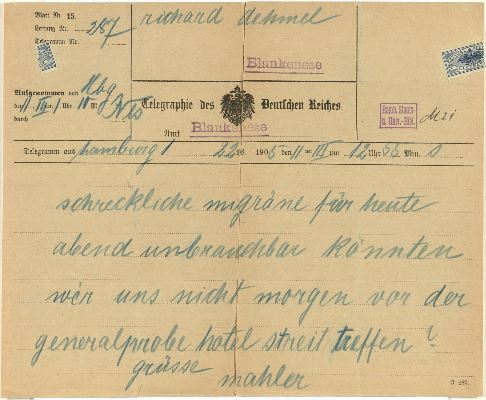 Blatt Nr. 15.
Leitung Nr. 287
Telegramm Nr.
richard dehmel
Blankenese
Aufgenommen von Hbg
den 11/III Uhr M.
durch
Telegraphie des Deutschen Reiches.
Amt Blankenese
Hamb. Staats-
u. Univ.-Bibl.
Telegramm aus hamburg 1 22 W. 1905 den 11 ten III um 12 Uhr 55 Min.
schreckliche migräne für heute
abend unbrauchbar könnten
wir uns nicht morgen vor der
generalprobe hotel streit treffen?
grüsse
mahler
C. 187.